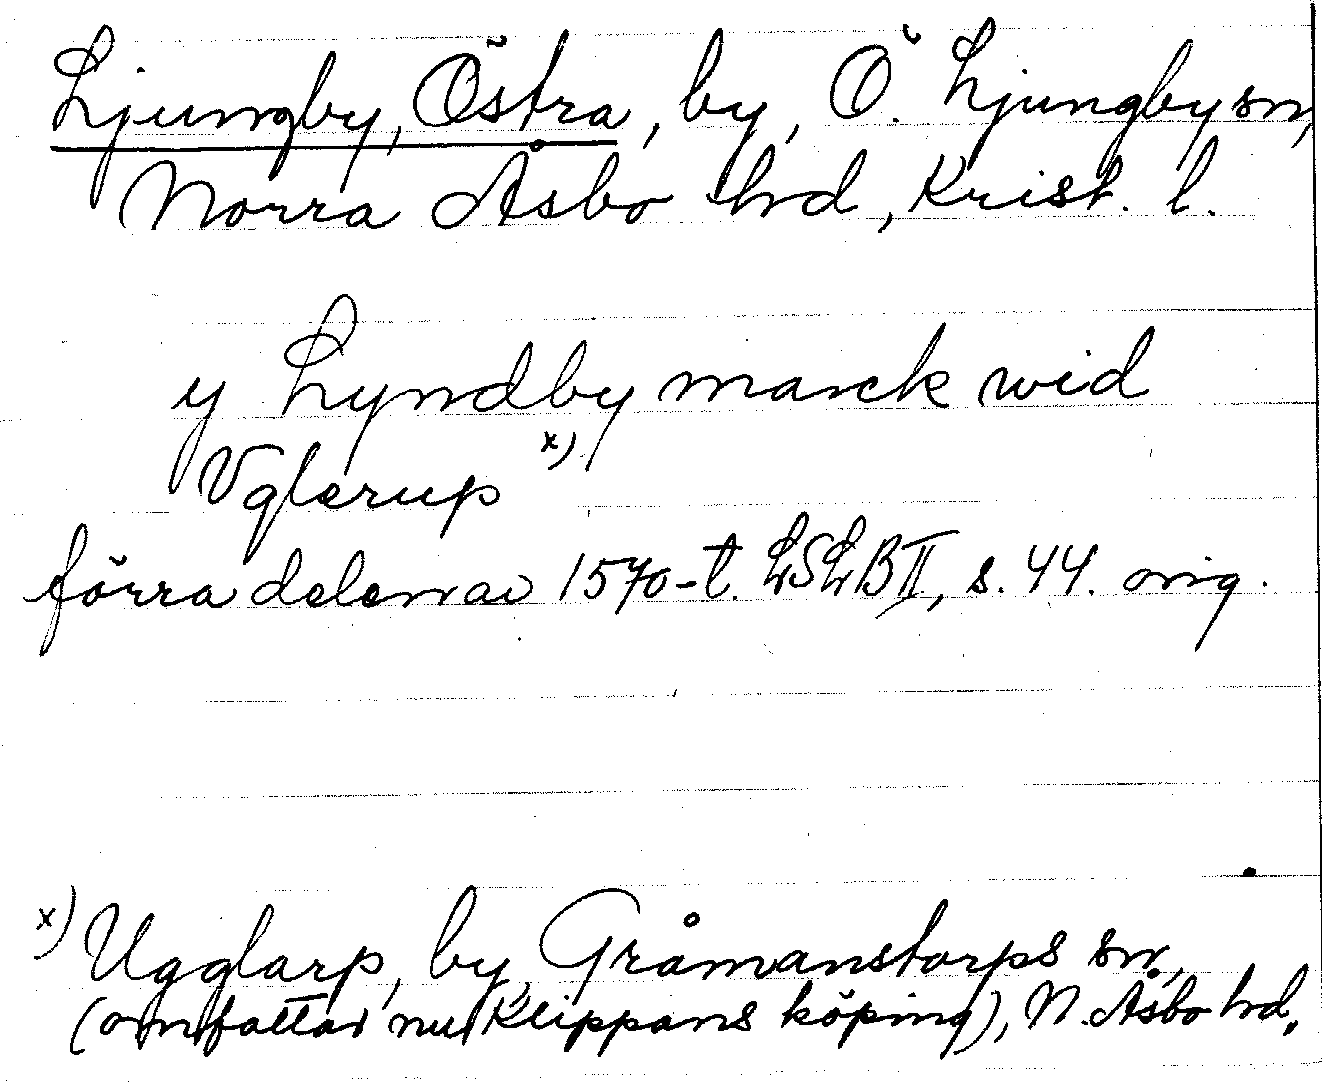 Ljungby, Östra, by, Ö. Ljungby sn,
Norra Åsbo hrd, Krist. l.
y Lyndby marck wid
Vglerup x)
förra delen av 1570-t. LSLB II, s. 44. orig.
x) Ugglarp, by, Gråmanstorps sn,
(omfattar nu Klippans köping), N. Åsbo hrd.